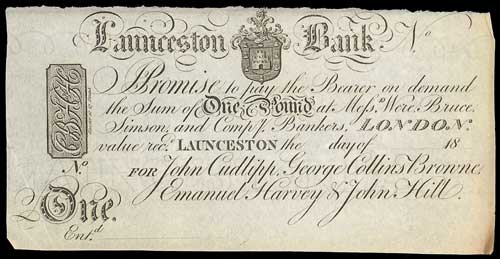 Launceston Bank. No
I Promise to pay the Bearer on demand
the Sum of One Pound at Messrs. Were, Bruce,
Simson, and Compy. Bankers, LONDON.
value recd. LAUNCESTON the day of 18
No.
FOR John Cudlipp, George Collins Browne,
Emanuel Harvey & John Hill.
£ One.
Entd.